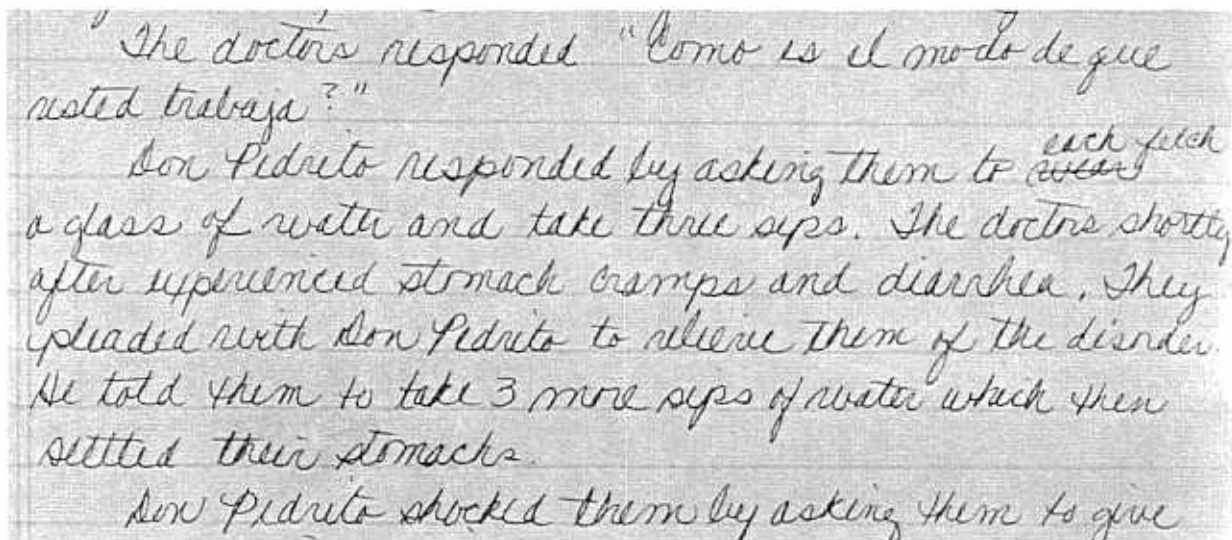 The doctors responded "Como is el modo de que
usted trabaja?"
Don Pedrito responded by asking them to each fetch
a glass of water and take three sips. The doctors shortly
after experienced stomach cramps and diarrhea. They
pleaded with Don Pedrito to relieve them of the disorder.
He told them to take 3 more sips of water which then
settled their stomachs.
Don Pedrito shocked them by asking them to give